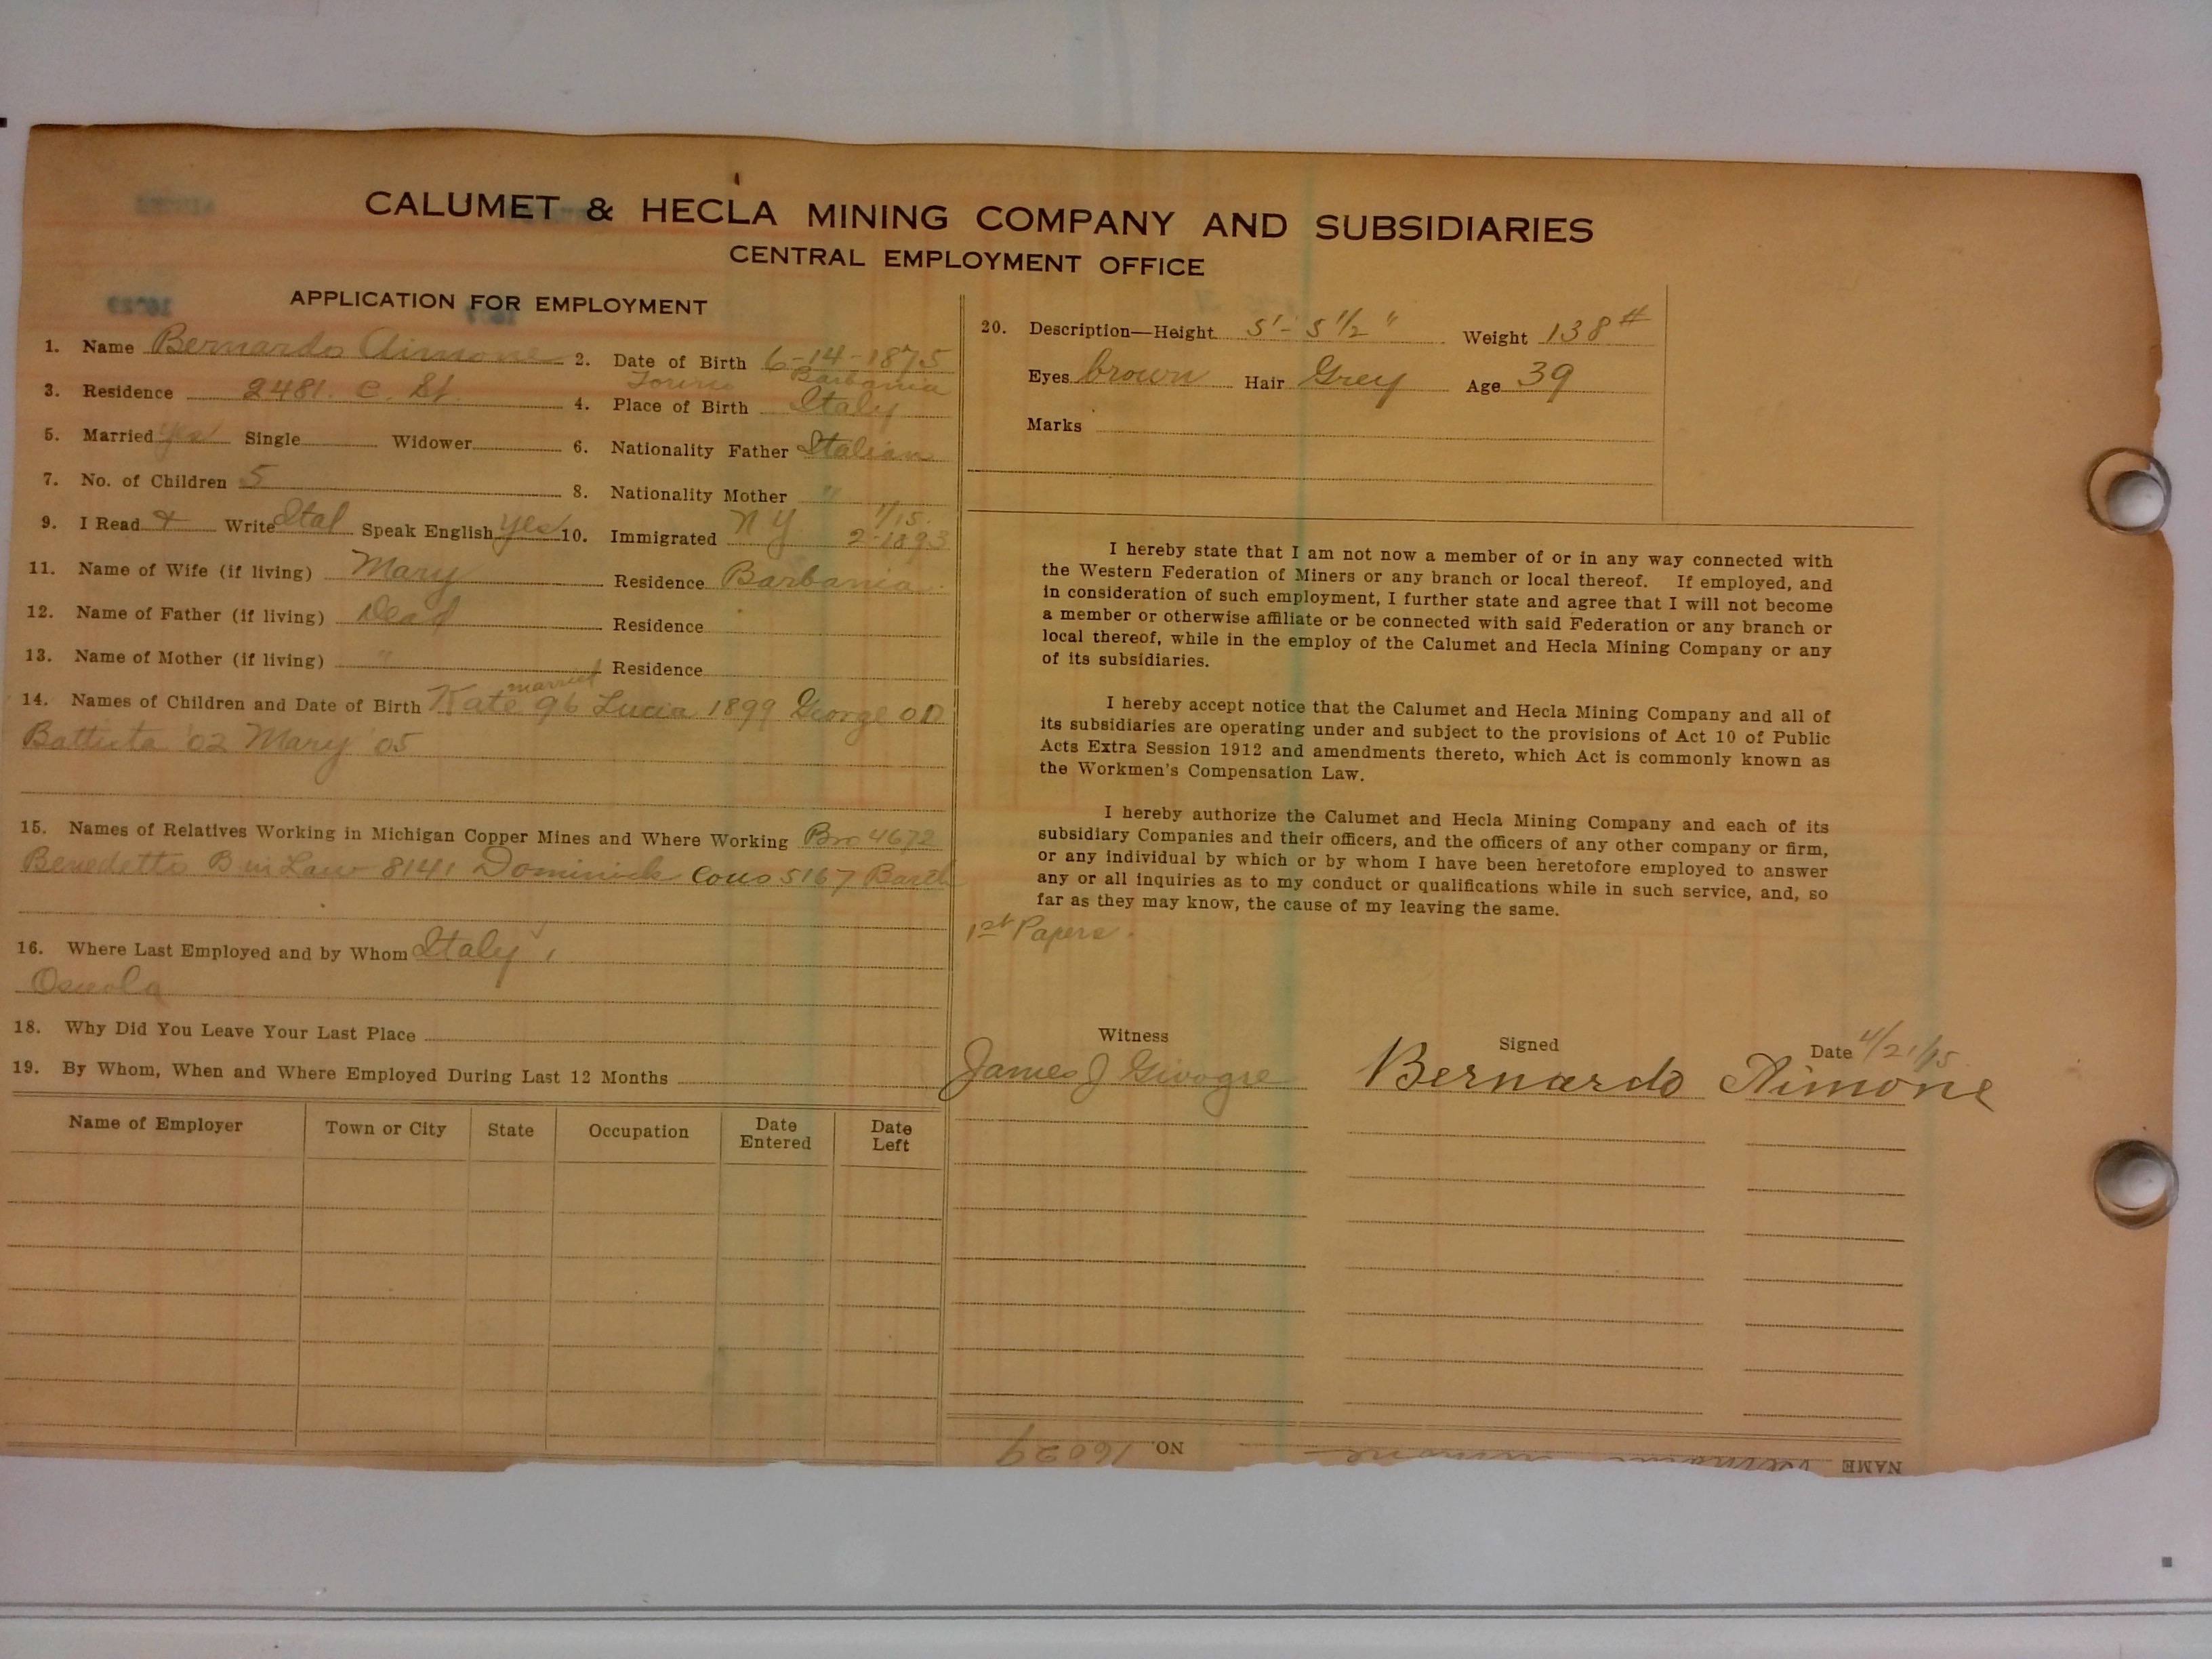 CALUMET & HECLA MINING COMPANY AND SUBSIDIARIES
CENTRAL EMPLOYMENT OFFICE
APPLICATION FOR EMPLOYMENT
1. Name Bernardo Aimone 2. Date of Birth 6-14-1875
Torino Barbania
3. Residence 2481. C. St. 4. Place of Birth Italy
5. Married yes Single Widower 6. Nationality Father Italian
7. No. of Children 5 8. Nationality Mother "
1/15.
9. I Read & Write Ital Speak English yes 10. Immigrated N Y 2-1893
11. Name of Wife (if living) Mary Residence Barbania
12. Name of Father (if living) Dead Residence
13. Name of Mother (if living) " Residence
married
14. Names of Children and Date of Birth Kate 96 Lucia 1899 George 00
Battista '02 Mary '05
15. Names of Relatives Working in Michigan Copper Mines and Where Working Bro 4672
Benedetto B in Law 8141 Dominick Cous 5167 Barth
16. Where Last Employed and by Whom Italy,
Osceola
18. Why Did You Leave Your Last Place
19. By Whom, When and Where Employed During Last 12 Months
Name of Employer Town or City State Occupation Date Entered Date Left
20. Description—Height 5'- 5 1/2" Weight 138#
Eyes brown Hair Grey Age 39
Marks
I hereby state that I am not now a member of or in any way connected with
the Western Federation of Miners or any branch or local thereof. If employed, and
in consideration of such employment, I further state and agree that I will not become
a member or otherwise affiliate or be connected with said Federation or any branch or
local thereof, while in the employ of the Calumet and Hecla Mining Company or any
of its subsidiaries.
I hereby accept notice that the Calumet and Hecla Mining Company and all of
its subsidiaries are operating under and subject to the provisions of Act 10 of Public
Acts Extra Session 1912 and amendments thereto, which Act is commonly known as
the Workmen's Compensation Law.
I hereby authorize the Calumet and Hecla Mining Company and each of its
subsidiary Companies and their officers, and the officers of any other company or firm,
or any individual by which or by whom I have been heretofore employed to answer
any or all inquiries as to my conduct or qualifications while in such service, and, so
far as they may know, the cause of my leaving the same.
1st Papers.
Witness Signed Date 4/21/15
James J Givogre Bernardo Aimone
NAME Aimone NO. 16029